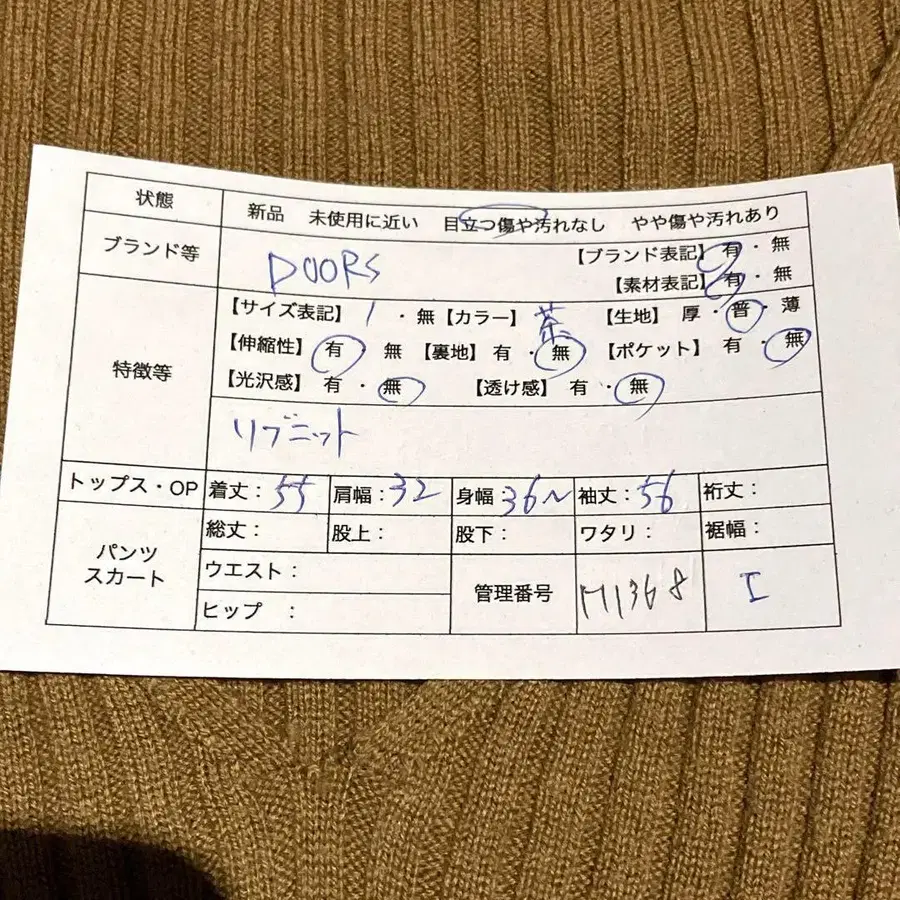 状態 新品 未使用に近い 目立つ傷や汚れなし やや傷や汚れあり
ブランド等 DOORS 【ブランド表記】有・無
【素材表記】有・無
特徴等 【サイズ表記】1・無【カラー】茶【生地】厚・普・薄
【伸縮性】有 無【裏地】有・無【ポケット】有・無
【光沢感】有・無【透け感】有・無
リブニット
トップス・OP 着丈:55 肩幅:32 身幅:36〜 袖丈:56 裄丈:
パンツ スカート 総丈: 股上: 股下: ワタリ: 裾幅:
ウエスト: 管理番号 M1368 I
ヒップ :